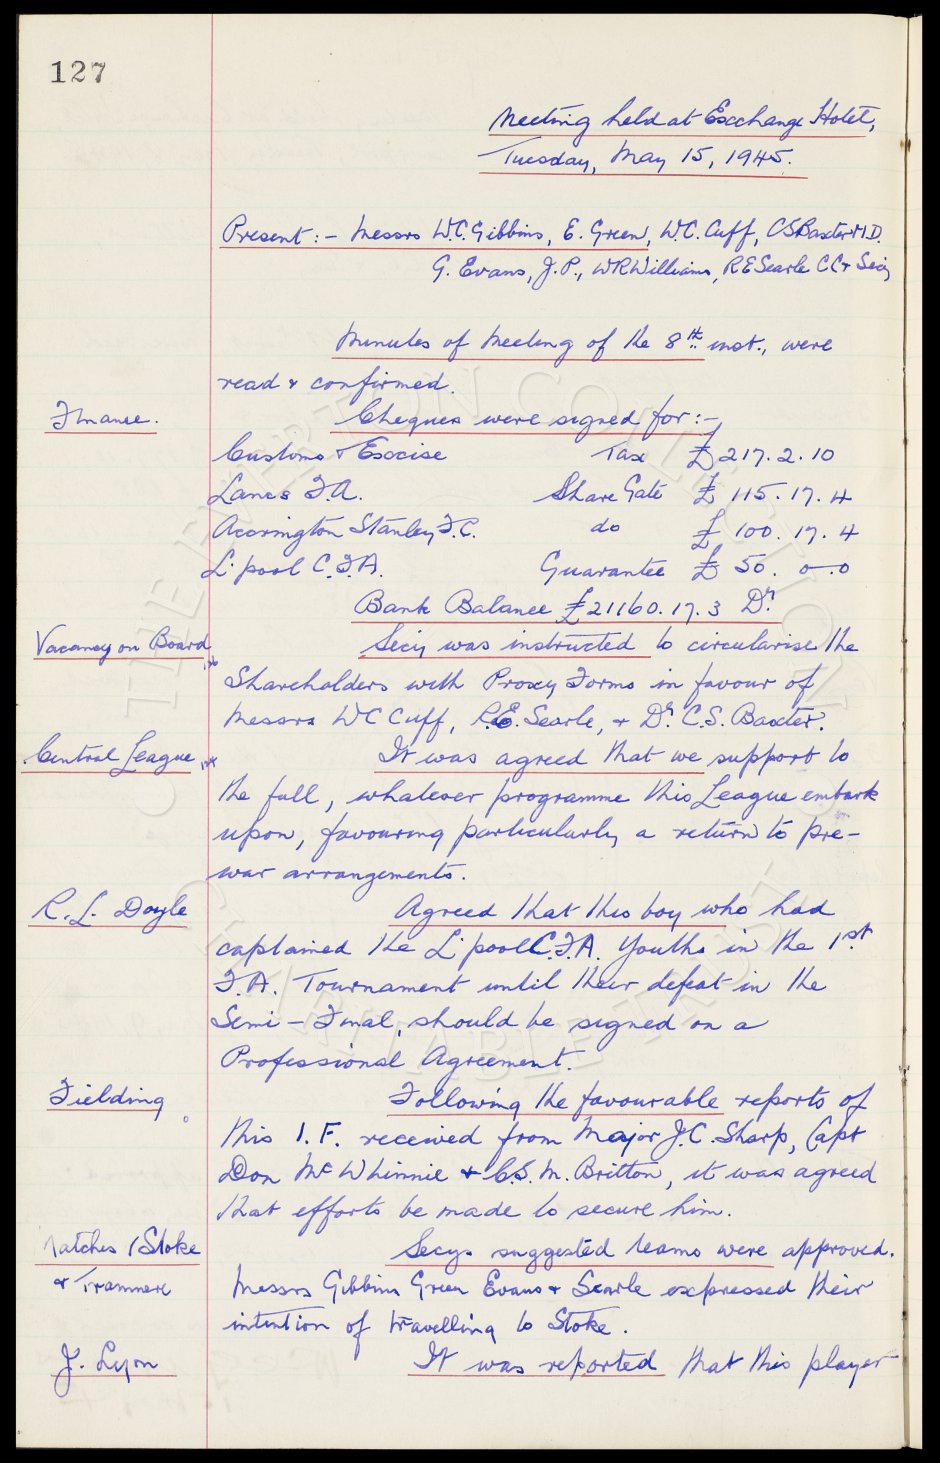 127
Meeting held at Exchange Hotel,
Tuesday, May 15, 1945.
Present:- Messrs W.C. Gibbins, E. Green, W.C. Cuff, C S Baxter M.D.
G. Evans, J.P., W R Williams, R E Searle C C & Secy
Minutes of Meeting of the 8th inst., were
read & confirmed.
Finance. Cheques were signed for:-
Customs & Excise Tax £217.2.10
Lancs F.A. Share Gate £115.17.4
Accrington Stanley F.C. do £100.17.4
L'pool C.F.A. Guarantee £50.0-.0
Bank Balance £21160.17.3 Dr
Vacancy on Board Secy was instructed to circularise the
Shareholders with Proxy Forms in favour of
Messrs W C Cuff, R.E. Searle, & Dr C.S. Baxter.
Central League It was agreed that we support to
the full, whatever programme this League embark
upon, favouring particularly a return to pre-
war arrangements.
R. L. Doyle Agreed that this boy who had
captained the L'pool C.F.A. Youths in the 1st
F.A. Tournament until their defeat in the
Semi-Final, should be signed on a
Professional Agreement.
Fielding Following the favourable reports of
this I.F. received from Major J.C. Sharp, Capt
Don McWhinnie & C.S.M. Britton, it was agreed
that efforts be made to secure him.
Matches / Stoke Secys suggested teams were approved.
& Tranmere Messrs Gibbins Green Evans & Searle expressed their
intention of travelling to Stoke.
J. Lyon It was reported that this player
THE EVERTON COLLECTION
CHARITABLE TRUST